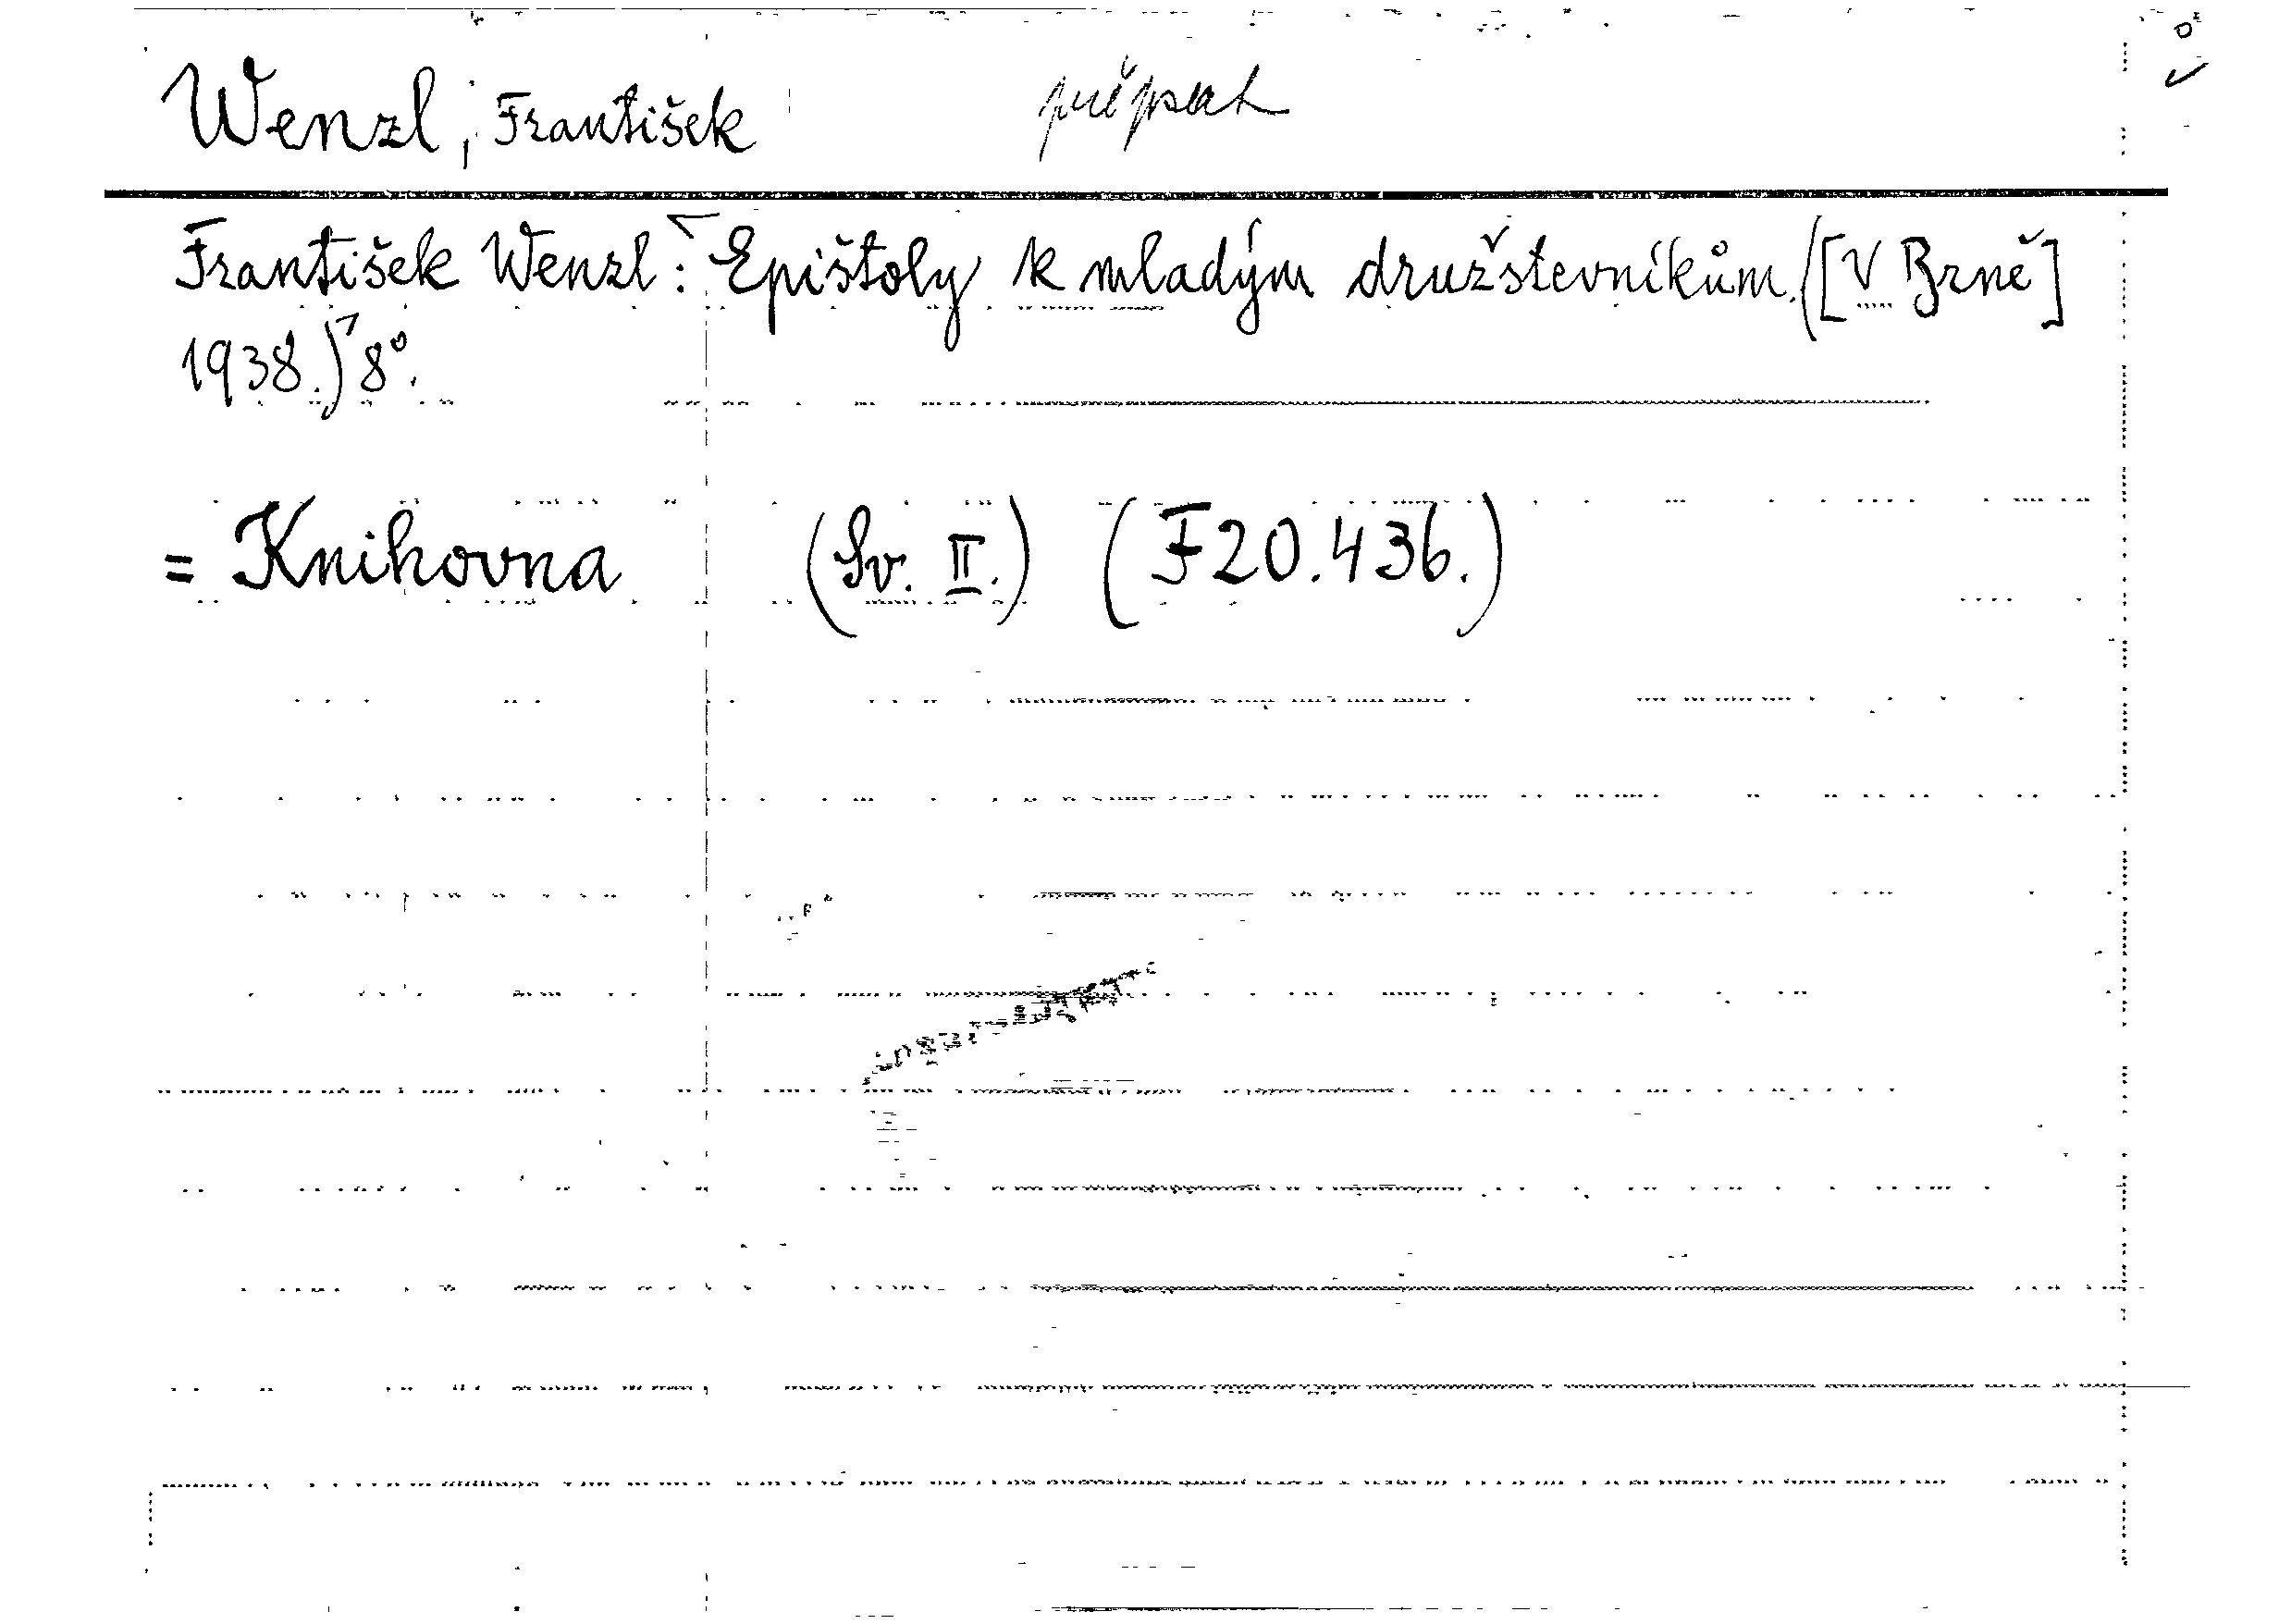 Wenzl, František přepsat
František Wenzl: Epištoly k mladým družstevníkům. ([V Brně]
1938.) 8°.
= Knihovna (Sv. II.) (F20.436.)